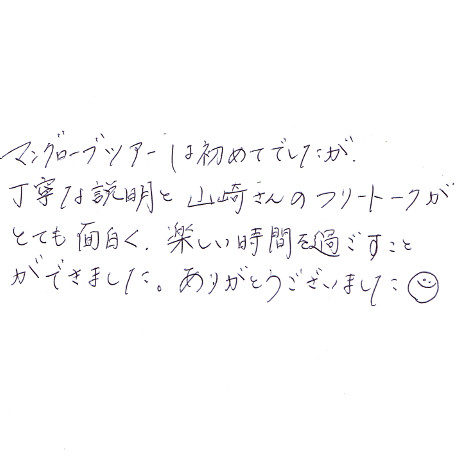 マングローブツアーは初めてでしたが、
丁寧な説明と山崎さんのフリートークが
とても面白く、楽しい時間を過ごすこと
ができました。ありがとうございました